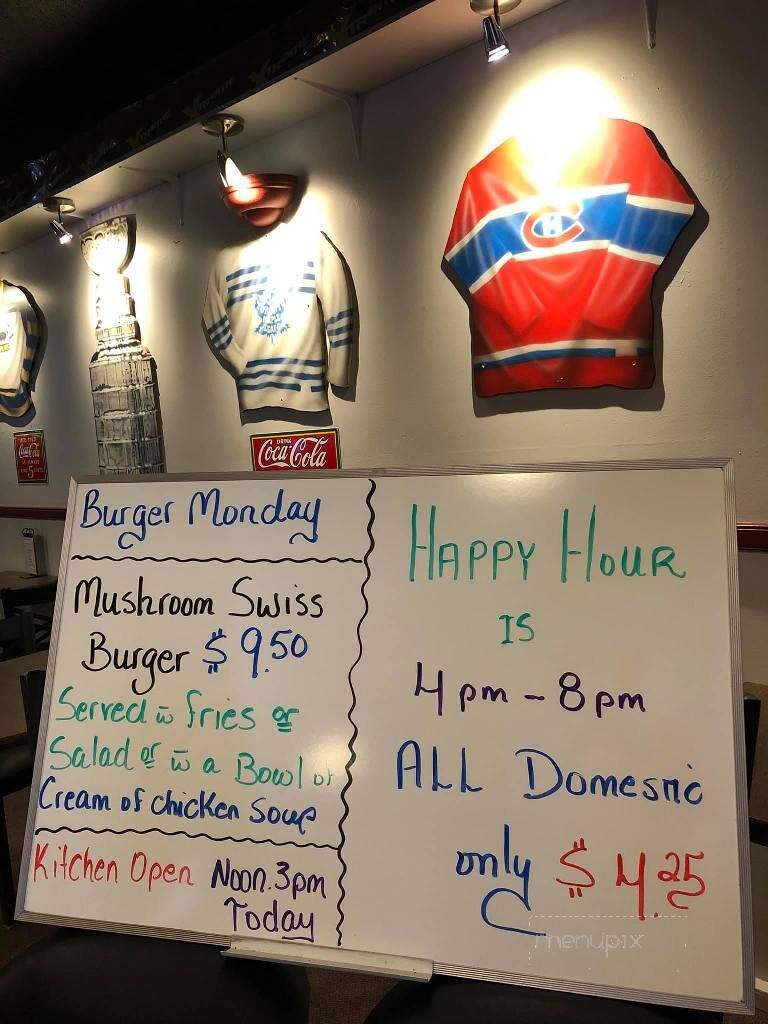 Coca-Cola
5
DRINK
Coca-Cola
CH
Burger Monday
Mushroom Swiss
Burger $9.50
Served w̄ fries or
Salad or w̄ a Bowl of
Cream of chicken Soup
Kitchen Open Noon.3pm
Today
HAPPY HOUR
IS
4pm - 8pm
ALL Domestic
only $4.25
menupix